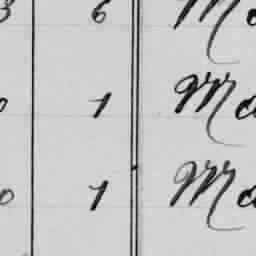 3 6 Ma
0 1 Ma
0 1 Ma